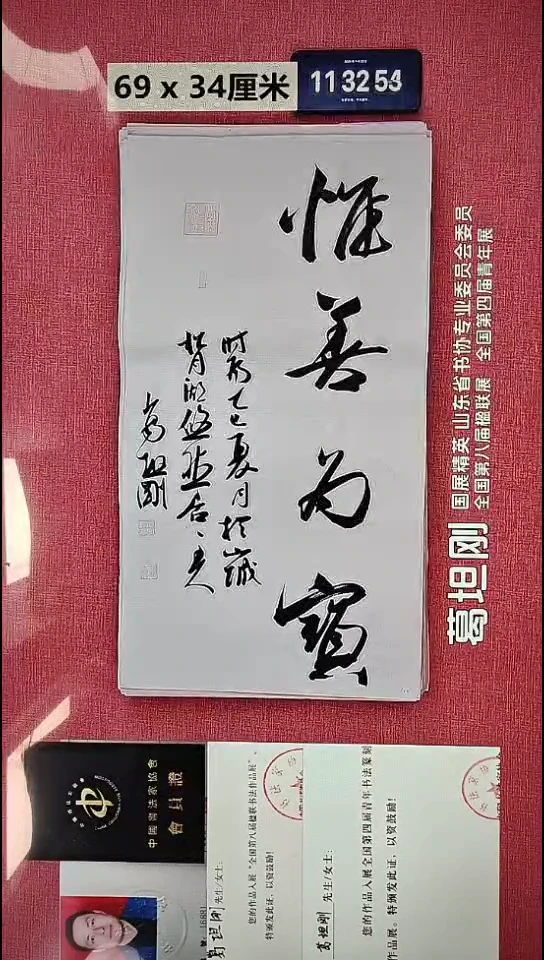 69 x 34厘米
11 32 53
惟善为宝
时在乙巳夏月于
葛坦刚
葛坦刚
国展精英 山东省书协专业委员会委员
全国第八届楹联展 全国第四届青年展
中國書法家協會
會員證
葛坦刚 先生/女士:
您的作品入展“全国第八届楹联书法作品展”。
特颁发此证，以资鼓励!
葛坦刚 先生/女士:
您的作品入展全国第四届青年书法篆刻
作品展。特颁发此证，以资鼓励!